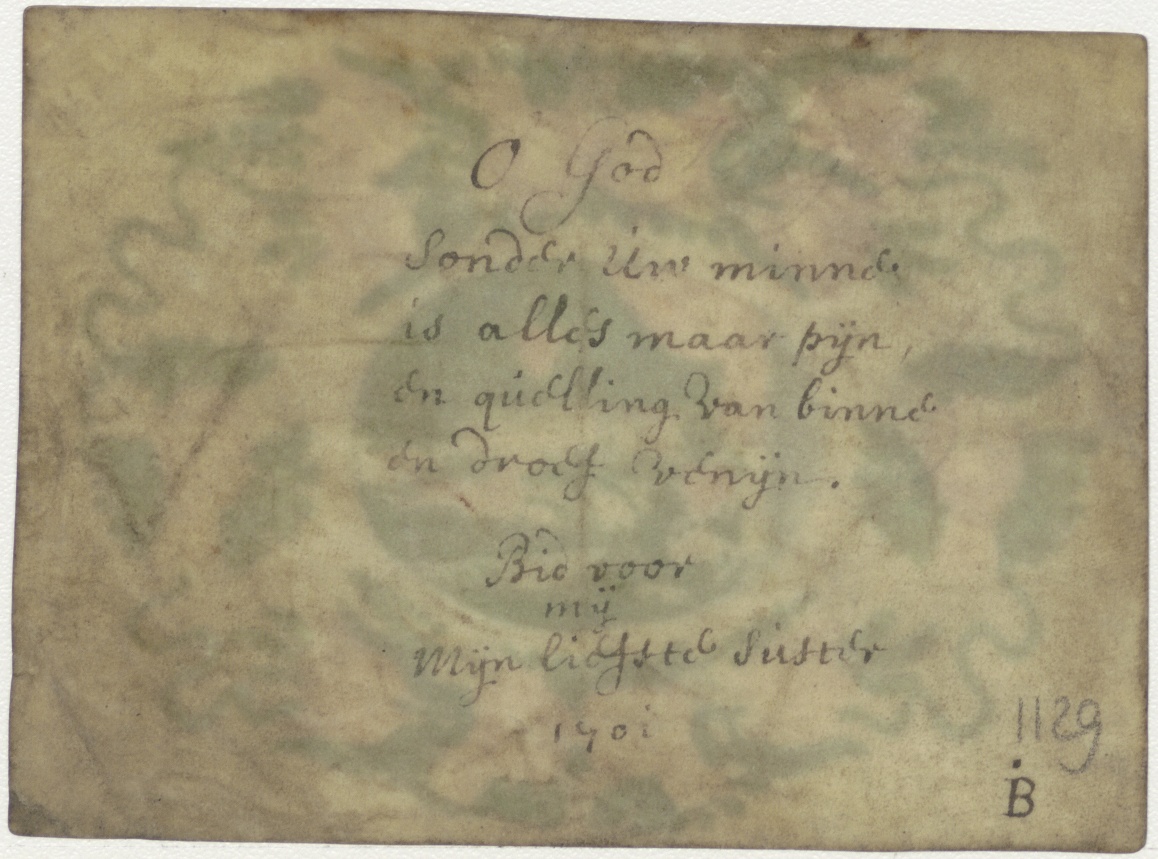 O God
Sonder Uw minne
is alles maar pijn,
en quelling van binne
en droef venijn.
Bid voor
mij
Mijn liefste suster
1701
1129
B